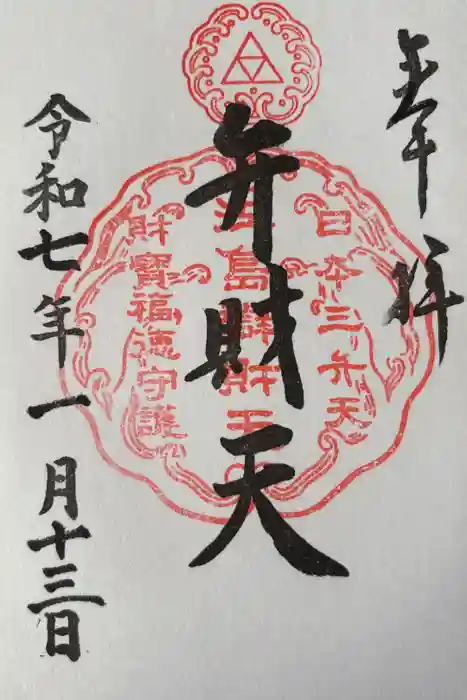 奉拝
日本三弁天
弁財天
江島辨財天
財寶福徳守護
令和七年一月十三日